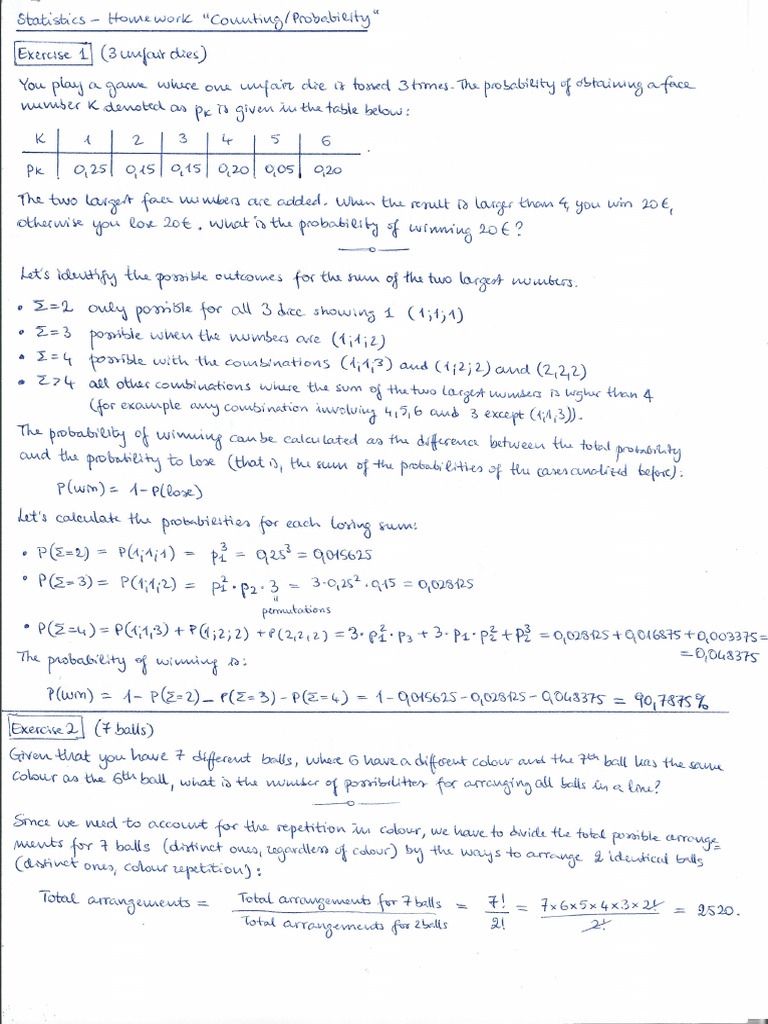 Statistics - Homework "Counting/Probability"
Exercise 1 (3 unfair dies)
You play a game where one unfair die is tossed 3 times. The probability of obtaining a face
number K denoted as pK is given in the table below:
K 1 2 3 4 5 6
pK 0,25 0,15 0,15 0,20 0,05 0,20
The two largest face numbers are added. When the result is larger than 4, you win 20€,
otherwise you lose 20€. What is the probability of winning 20€?
Let's identify the possible outcomes for the sum of the two largest numbers.
• Σ=2 only possible for all 3 dice showing 1 (1;1;1)
• Σ=3 possible when the numbers are (1;1;2)
• Σ=4 possible with the combinations (1;1,3) and (1;2;2) and (2,2,2)
• Σ>4 all other combinations where the sum of the two largest numbers is higher than 4
(for example any combination involving 4,5,6 and 3 except (1;1;3)).
The probability of winning can be calculated as the difference between the total probability
and the probability to lose (that is, the sum of the probabilities of the cases analized before):
P(win) = 1-P(lose)
Let's calculate the probabilities for each losing sum:
• P(Σ=2) = P(1;1;1) = p₁³ = 0,25³ = 0,015625
• P(Σ=3) = P(1;1;2) = p₁²·p₂·3 = 3·0,25²·0,15 = 0,028125
"
permutations
• P(Σ=4) = P(1;1,3) + P(1;2;2) + P(2,2,2) = 3·p₁²·p₃ + 3·p₁·p₂² + p₂³ = 0,028125+0,016875+0,003375=
=0,048375
The probability of winning is:
P(win) = 1- P(Σ=2) - P(Σ=3) - P(Σ=4) = 1-0,015625-0,028125-0,048375 = 90,7875%
Exercise 2 (7 balls)
Given that you have 7 different balls, where 6 have a different colour and the 7th ball has the same
colour as the 6th ball, what is the number of possibilities for arranging all balls in a line?
Since we need to account for the repetition in colour, we have to divide the total possible arrange=
ments for 7 balls (distinct ones, regardless of colour) by the ways to arrange 2 identical balls
(distinct ones, colour repetition):
Total arrangements = Total arrangements for 7 balls / Total arrangements for 2 balls = 7!/2! = 7×6×5×4×3×2!/2! = 2520.